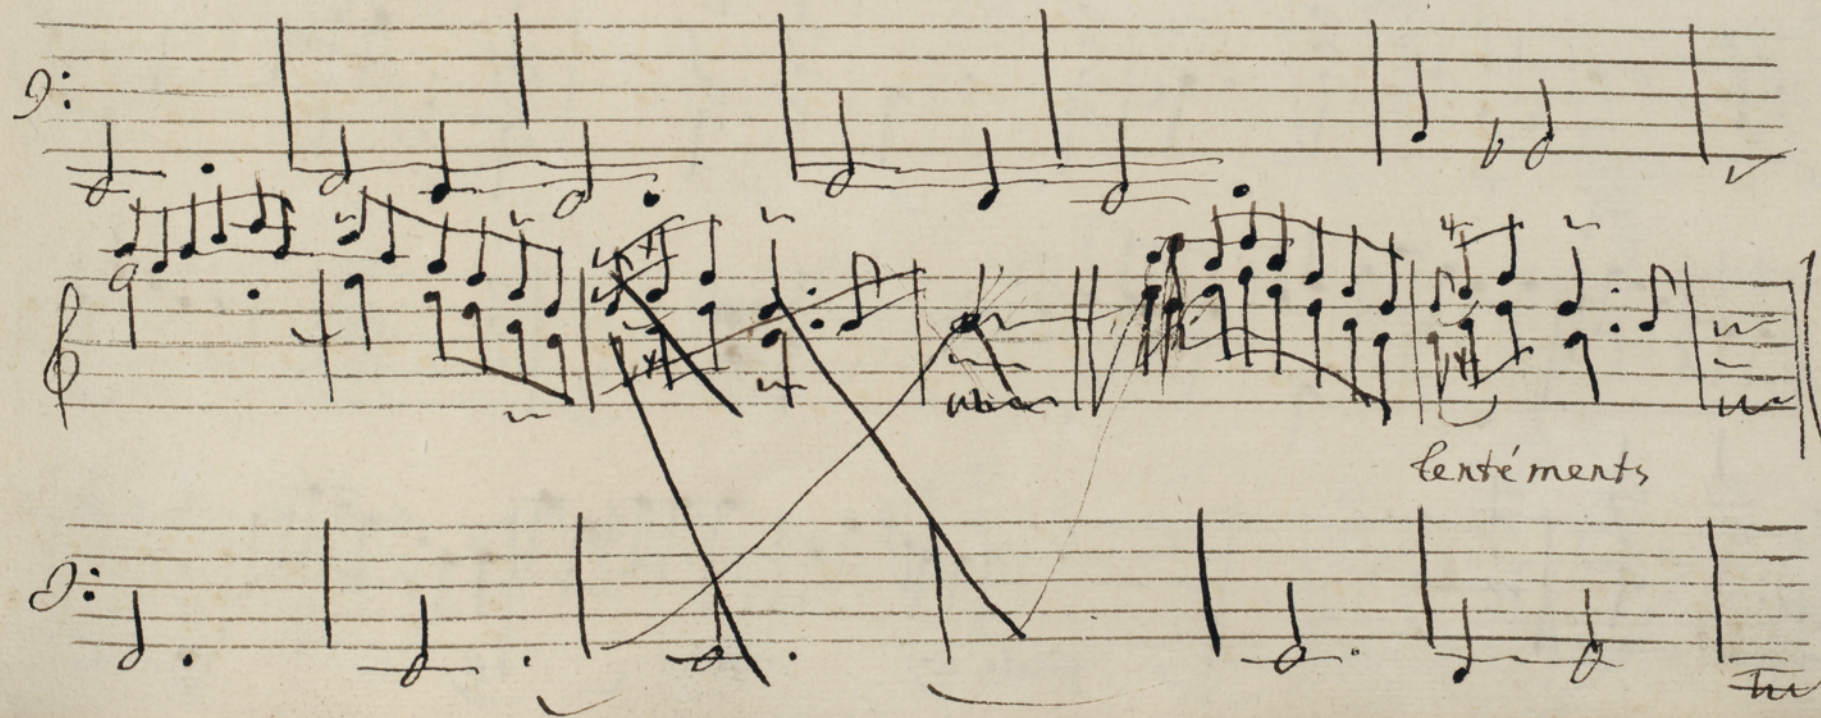 lentéments